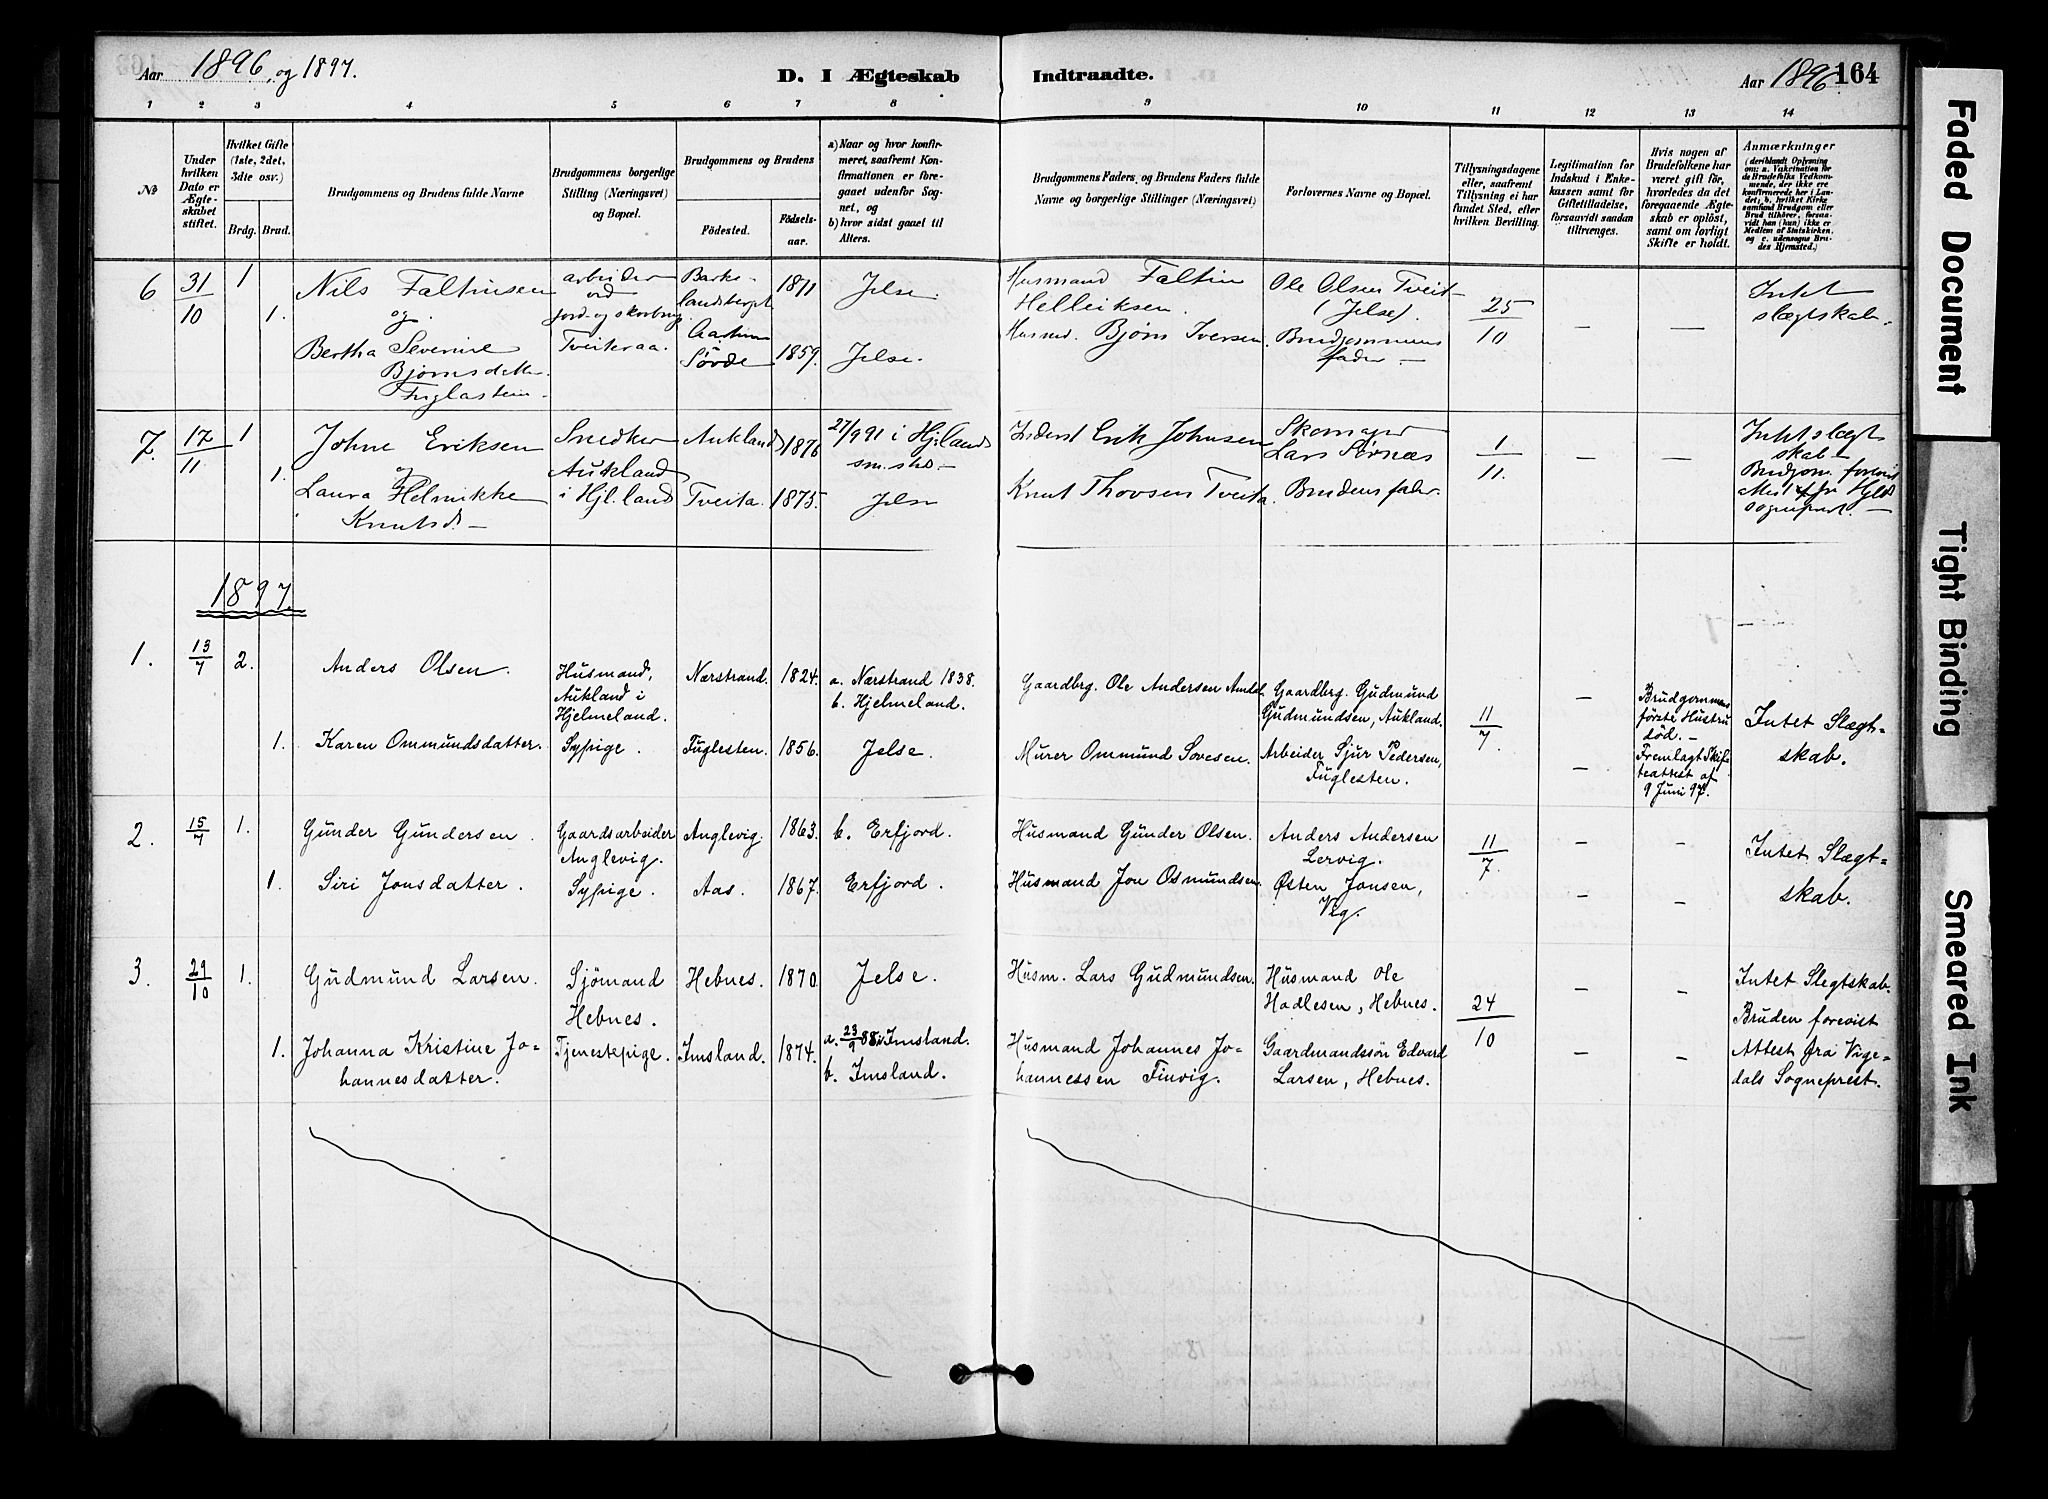 Aar 1896, og 1897.
D. I Ægteskab Indtraadte.
Aar 1896 164
1 2 3 4 5 6 7 8 9 10 11 12 13 14
№
Under hvilken Dato er Ægteskabet stiftet.
Hvilket Gifte (1ste, 2det, 3die osv.)
Brdg. Brud.
Brudgommens og Brudens fulde Navne
Brudgommens borgerlige Stilling (Næringsvei) og Bopæl.
Brudgommens og Brudens
Födested.
Födselsaar.
a) Naar og hvor konfirmeret, saafremt Konfirmationen er foregaaet udenfor Sognet, og
b) hvor sidst gaaet til Alters.
Brudgommens Faders og Brudens Faders fulde Navne og borgerlige Stillinger (Næringsvei)
Forlovernes Navne og Bopæl.
Tillysningsdagene eller, saafremt Tillysning ei har fundet Sted, efter hvilken Bevilling.
Legitimation for Indskud i Enkekassen samt for Giftetilladelse, forsaavidt saadan tiltrænges.
Hvis nogen af Brudefolkene har været gift för, hvorledes da det foregaaende Ægteskab er oplöst, samt om lovligt Skifte er holdt.
Anmærkninger
(deriblandt Oplysning om: a. Vakcination för de Brudefolks Vedkommende, der ikke ere konfirmerede her i Landet; b. hvilket Kirkesamfund Brudgom eller Brud tilhörer, forsaavidt han (hun) ikke er Medlem af Statskirken, og c. udensogns Brudes Hjemsted.)
6 31/10 1 Nils Faltinsen arbeider ved jord- og skovbrug Tveiteraa. 1871 Jelse. Husmand Faltin Helleiksen. Ole Olsen Tveit (Jelse). 25/10 — — Intet slægtskab.
og
1. Bertha Severine Bjørnsdatter Fuglastein. Sövde 1859. Jelse. Husmd. Bjørn Iversen. Brudgommens fader —
7. 17/11 1 Johne Eriksen Snedker Aukland i Hjl.land Aukland 1876 27/9 91 i Hjl.lands Inderst Erik Johnsen Skomager Lars Sörnæs 1/11. — — Intet slægtskab —
og
1. Laura Helmikke Knutsd. — Tveita. 1875. Jelse Knut Thovsen Tveita. Brudens fader. Brudgom. forevist Attest fra Hjlds sognepræst. —
1897.
1. 13/7 2. Anders Olsen. Husmand, Aukland i Hjelmeland. Nærstrand. 1824. a. Nærstrand 1838. b. Hjelmeland. Gaardbrg. Ole Andersen Gaardbrg. Gudmund Gudmundsen, Aukland. 11/7 — Brudgommens förste Hustru död. — Fremlagt Skifteattest af 9 Juni 97. Intet Slægtskab.
1. Karen Ommundsdatter. Sypige. Fuglesten. 1856. Jelse. Murer Ommund Sovesen. Arbeider Sjur Pedersen, Fuglesten. —
2. 15/7 1. Gunder Gundersen. Gaardsarbeider Anglevig. Anglevig. 1863. b. Erfjord. Husmand Gunder Olsen. Anders Andersen Lervig. 11/7 — — Intet Slægtskab.
1. Siri Jonsdatter. Sypige. Aas. 1867. Erfjord. Husmand Jon Osmundsen. Østen Jonsen, Vig. — —
3. 29/10 1. Gudmund Larsen. Sjömand Hebnes. Hebnes. 1870. Jelse. Husm. Lars Gudmundsen. Husmand Ole Hadlesen, Hebnes. 24/10 — — Intet Slegtskab.
1. Johanna Kristine Johannesdatter. Tjenestepige. Imsland. 1874. a. 23/9 88 i Imsland. b. Imsland. Husmand Johannes Johannessen Finvig. Gaardmandssön Edvard Larsen, Hebnes. — — Bruden forevist Attest fra Vigedals Sogneprest.
Faded Document
Tight Binding
Smeared Ink